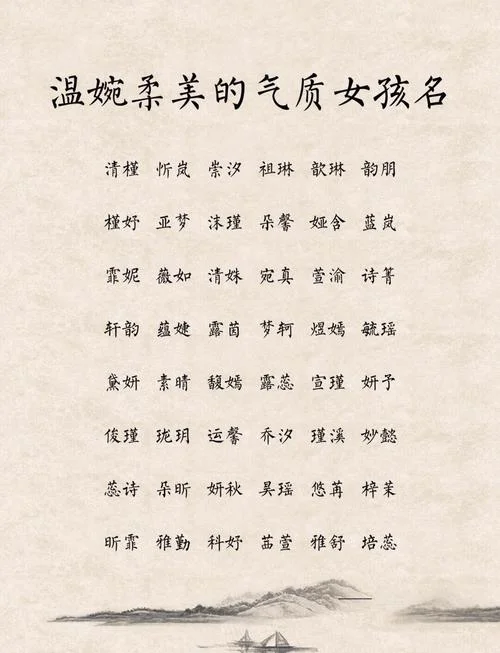 温婉柔美的气质女孩名
清槿 忻岚 崇汐 祖琳 歆琳 韵朋
槿妤 亚梦 沫瑾 朵馨 娅含 蓝岚
霏妮 薇如 清姝 宛真 萱渝 诗菁
轩韵 蕴婕 露茵 梦轲 煜嫣 毓瑶
黛妍 素晴 馥嫣 露蕊 宣瑾 妍予
俊瑾 珑玥 运馨 乔汐 瑾溪 妙懿
蕊诗 朵昕 妍秋 昊瑶 悠苒 梓茉
昕霏 雅勤 科妤 茁萱 雅舒 培蕊